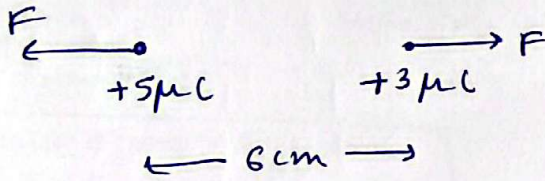 F F
+5μC +3μC
6cm